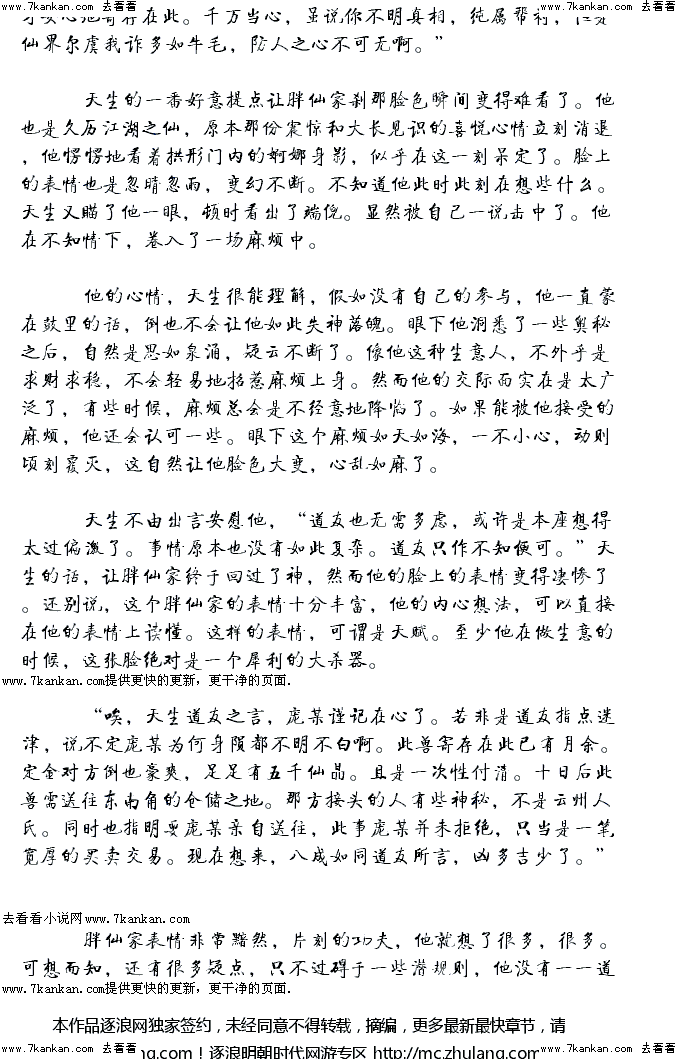 www.7kankan.com 去看看 www.7kankan.com 去看看
仙界尔虞我诈多如牛毛，防人之心不可无啊。”
天生的一番好意提点让胖仙家刹那脸色瞬间变得难看了。他
也是久历江湖之仙，原本那份震惊和大长见识的喜悦心情立刻消退
，他愣愣地看着拱形门内的婀娜身影，似乎在这一刻呆定了。脸上
的表情也是忽晴忽雨，变幻不断。不知道他此时此刻在想些什么。
天生又瞄了他一眼，顿时看出了端倪。显然被自己一说击中了。他
在不知情下，卷入了一场麻烦中。
他的心情，天生很能理解，假如没有自己的参与，他一直蒙
在鼓里的话，倒也不会让他如此失神落魄。眼下他洞悉了一些奥秘
之后，自然是思如泉涌，疑云不断了。像他这种生意人，不外乎是
求财求稳，不会轻易地招惹麻烦上身。然而他的交际面实在是太广
泛了，有些时候，麻烦总会是不经意地降临了。如果能被他接受的
麻烦，他还会认可一些。眼下这个麻烦如天如海，一不小心，动则
顷刻覆灭，这自然让他脸色大变，心乱如麻了。
天生不由出言安慰他，“道友也无需多虑，或许是本座想得
太过偏激了。事情原本也没有如此复杂。道友只作不知便可。”天
生的话，让胖仙家终于回过了神，然而他的脸上的表情变得凄惨了
。还别说，这个胖仙家的表情十分丰富，他的内心想法，可以直接
在他的表情上读懂。这样的表情，可谓是天赋。至少他在做生意的
时候，这张脸绝对是一个犀利的大杀器。
www.7kankan.com提供更快的更新，更干净的页面.
“唉，天生道友之言，庞某谨记在心了。若非是道友指点迷
津，说不定庞某为何身陨都不明不白啊。此兽寄存在此已有月余。
定金对方倒也豪爽，足足有五千仙晶。且是一次性付清。十日后此
兽需送往东南角的仓储之地。那方接头的人有些神秘，不是云州人
氏。同时也指明要庞某亲自送往，此事庞某并未拒绝，只当是一笔
宽厚的买卖交易。现在想来，八成如同道友所言，凶多吉少了。”
去看看小说网www.7kankan.com
胖仙家表情非常黯然，片刻的功夫，他就想了很多，很多。
可想而知，还有很多疑点，只不过碍于一些潜规则，他没有一一道
www.7kankan.com提供更快的更新，更干净的页面.
本作品逐浪网独家签约，未经同意不得转载，摘编，更多最新最快章节，请
www.7kankan.com 去看看 ng.com！逐浪明朝时代网游专区 http://mc.zhulang.com/ www.7kankan.com 去看看